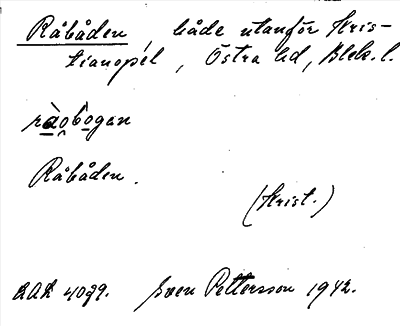 Råbåden, både utanför Kris-
tianopel, Östra hd, Blek. l.
ràobogan
Råbåden.
(Krist.)
Sven Pettersson 1942.